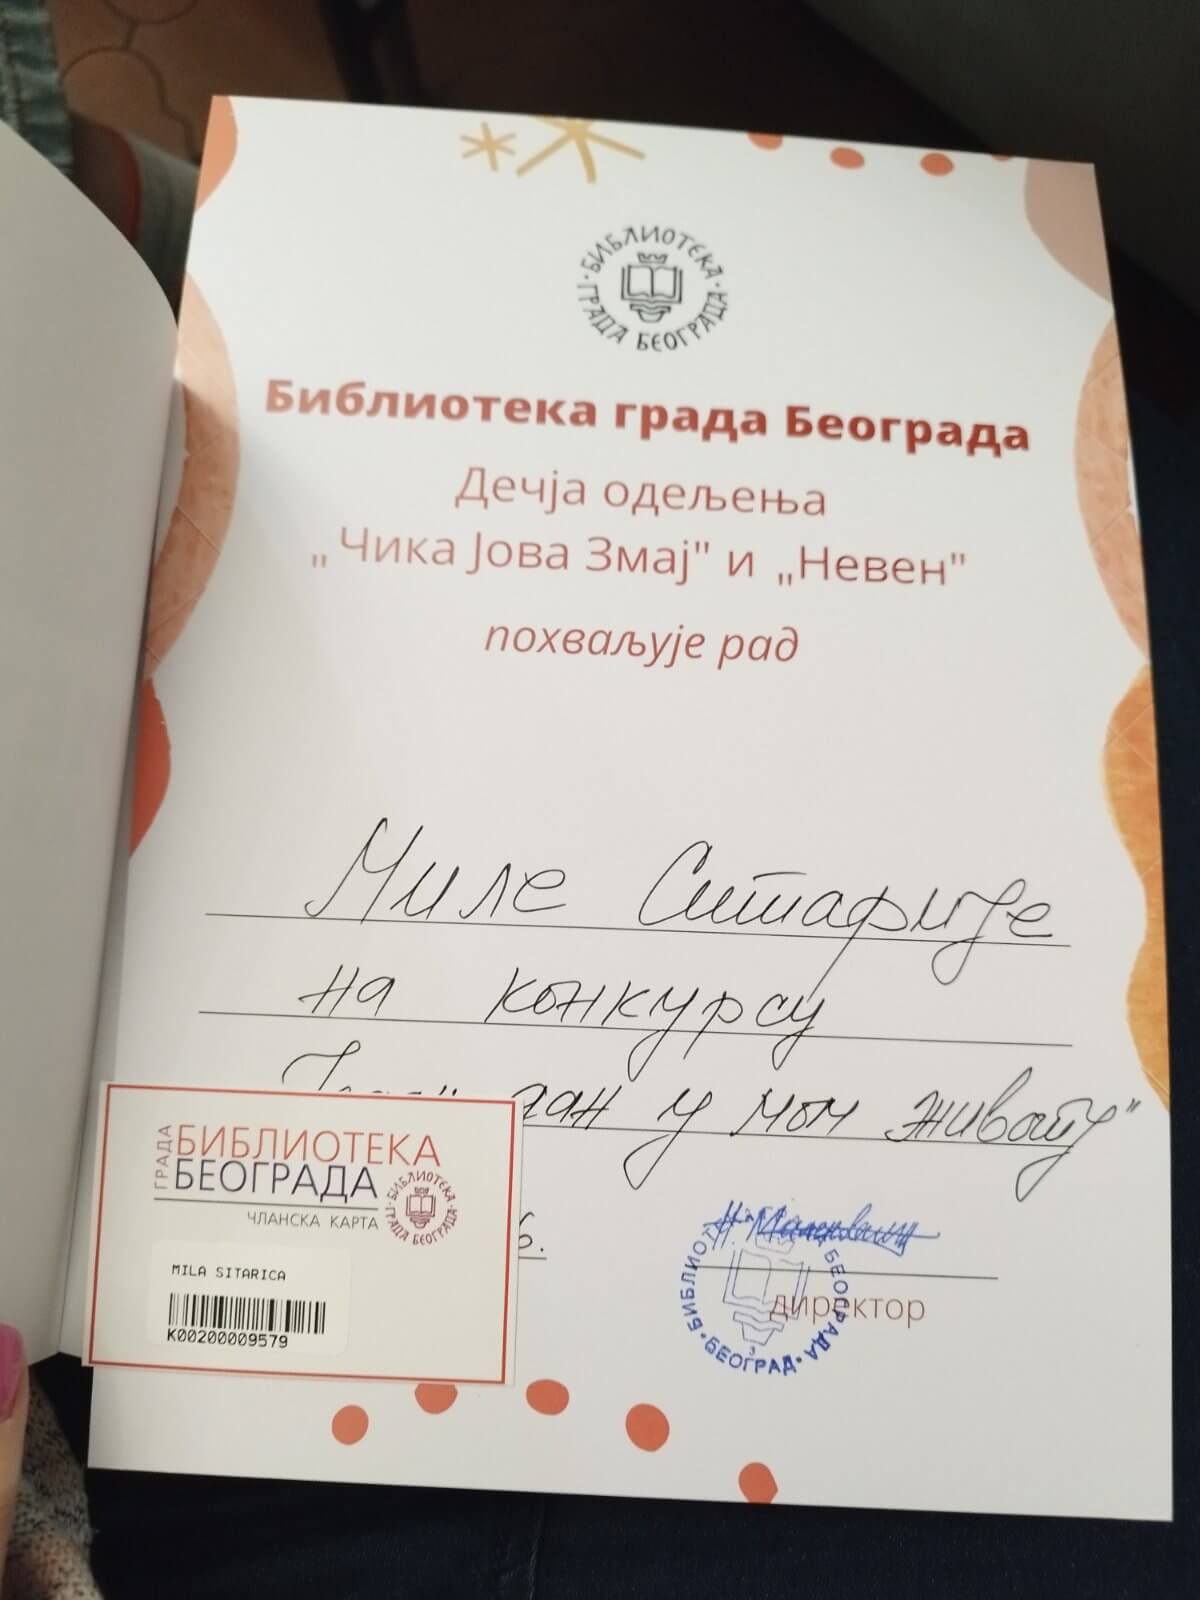 БИБЛИОТЕКА ГРАДА БЕОГРАДА
Библиотека града Београда
Дечја одељења
„Чика Јова Змај" и „Невен"
похваљује рад
Миле Ситарице
на конкурсу
дан у мом животу"
6.
директор
БИБЛИОТЕКА
ГРАДА
БЕОГРАДА
ЧЛАНСКА КАРТА
БИБЛИОТЕКА ГРАДА БЕОГРАДА
MILA SITARICA
K00200009579
БЕОГРАДА
БЕОГРАД
3